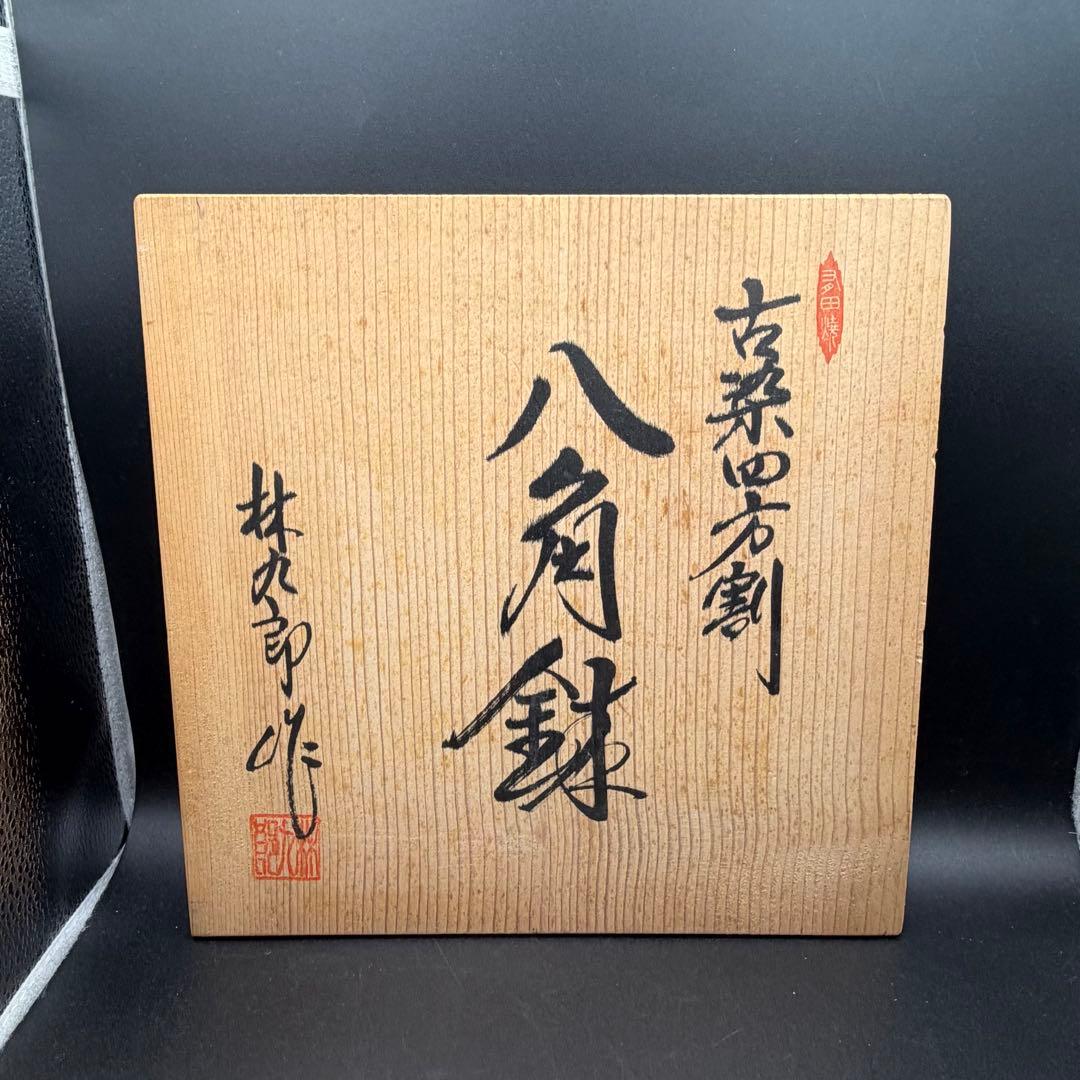 多田焼
古染四方割
八角鉢
林九郎作
林九郎